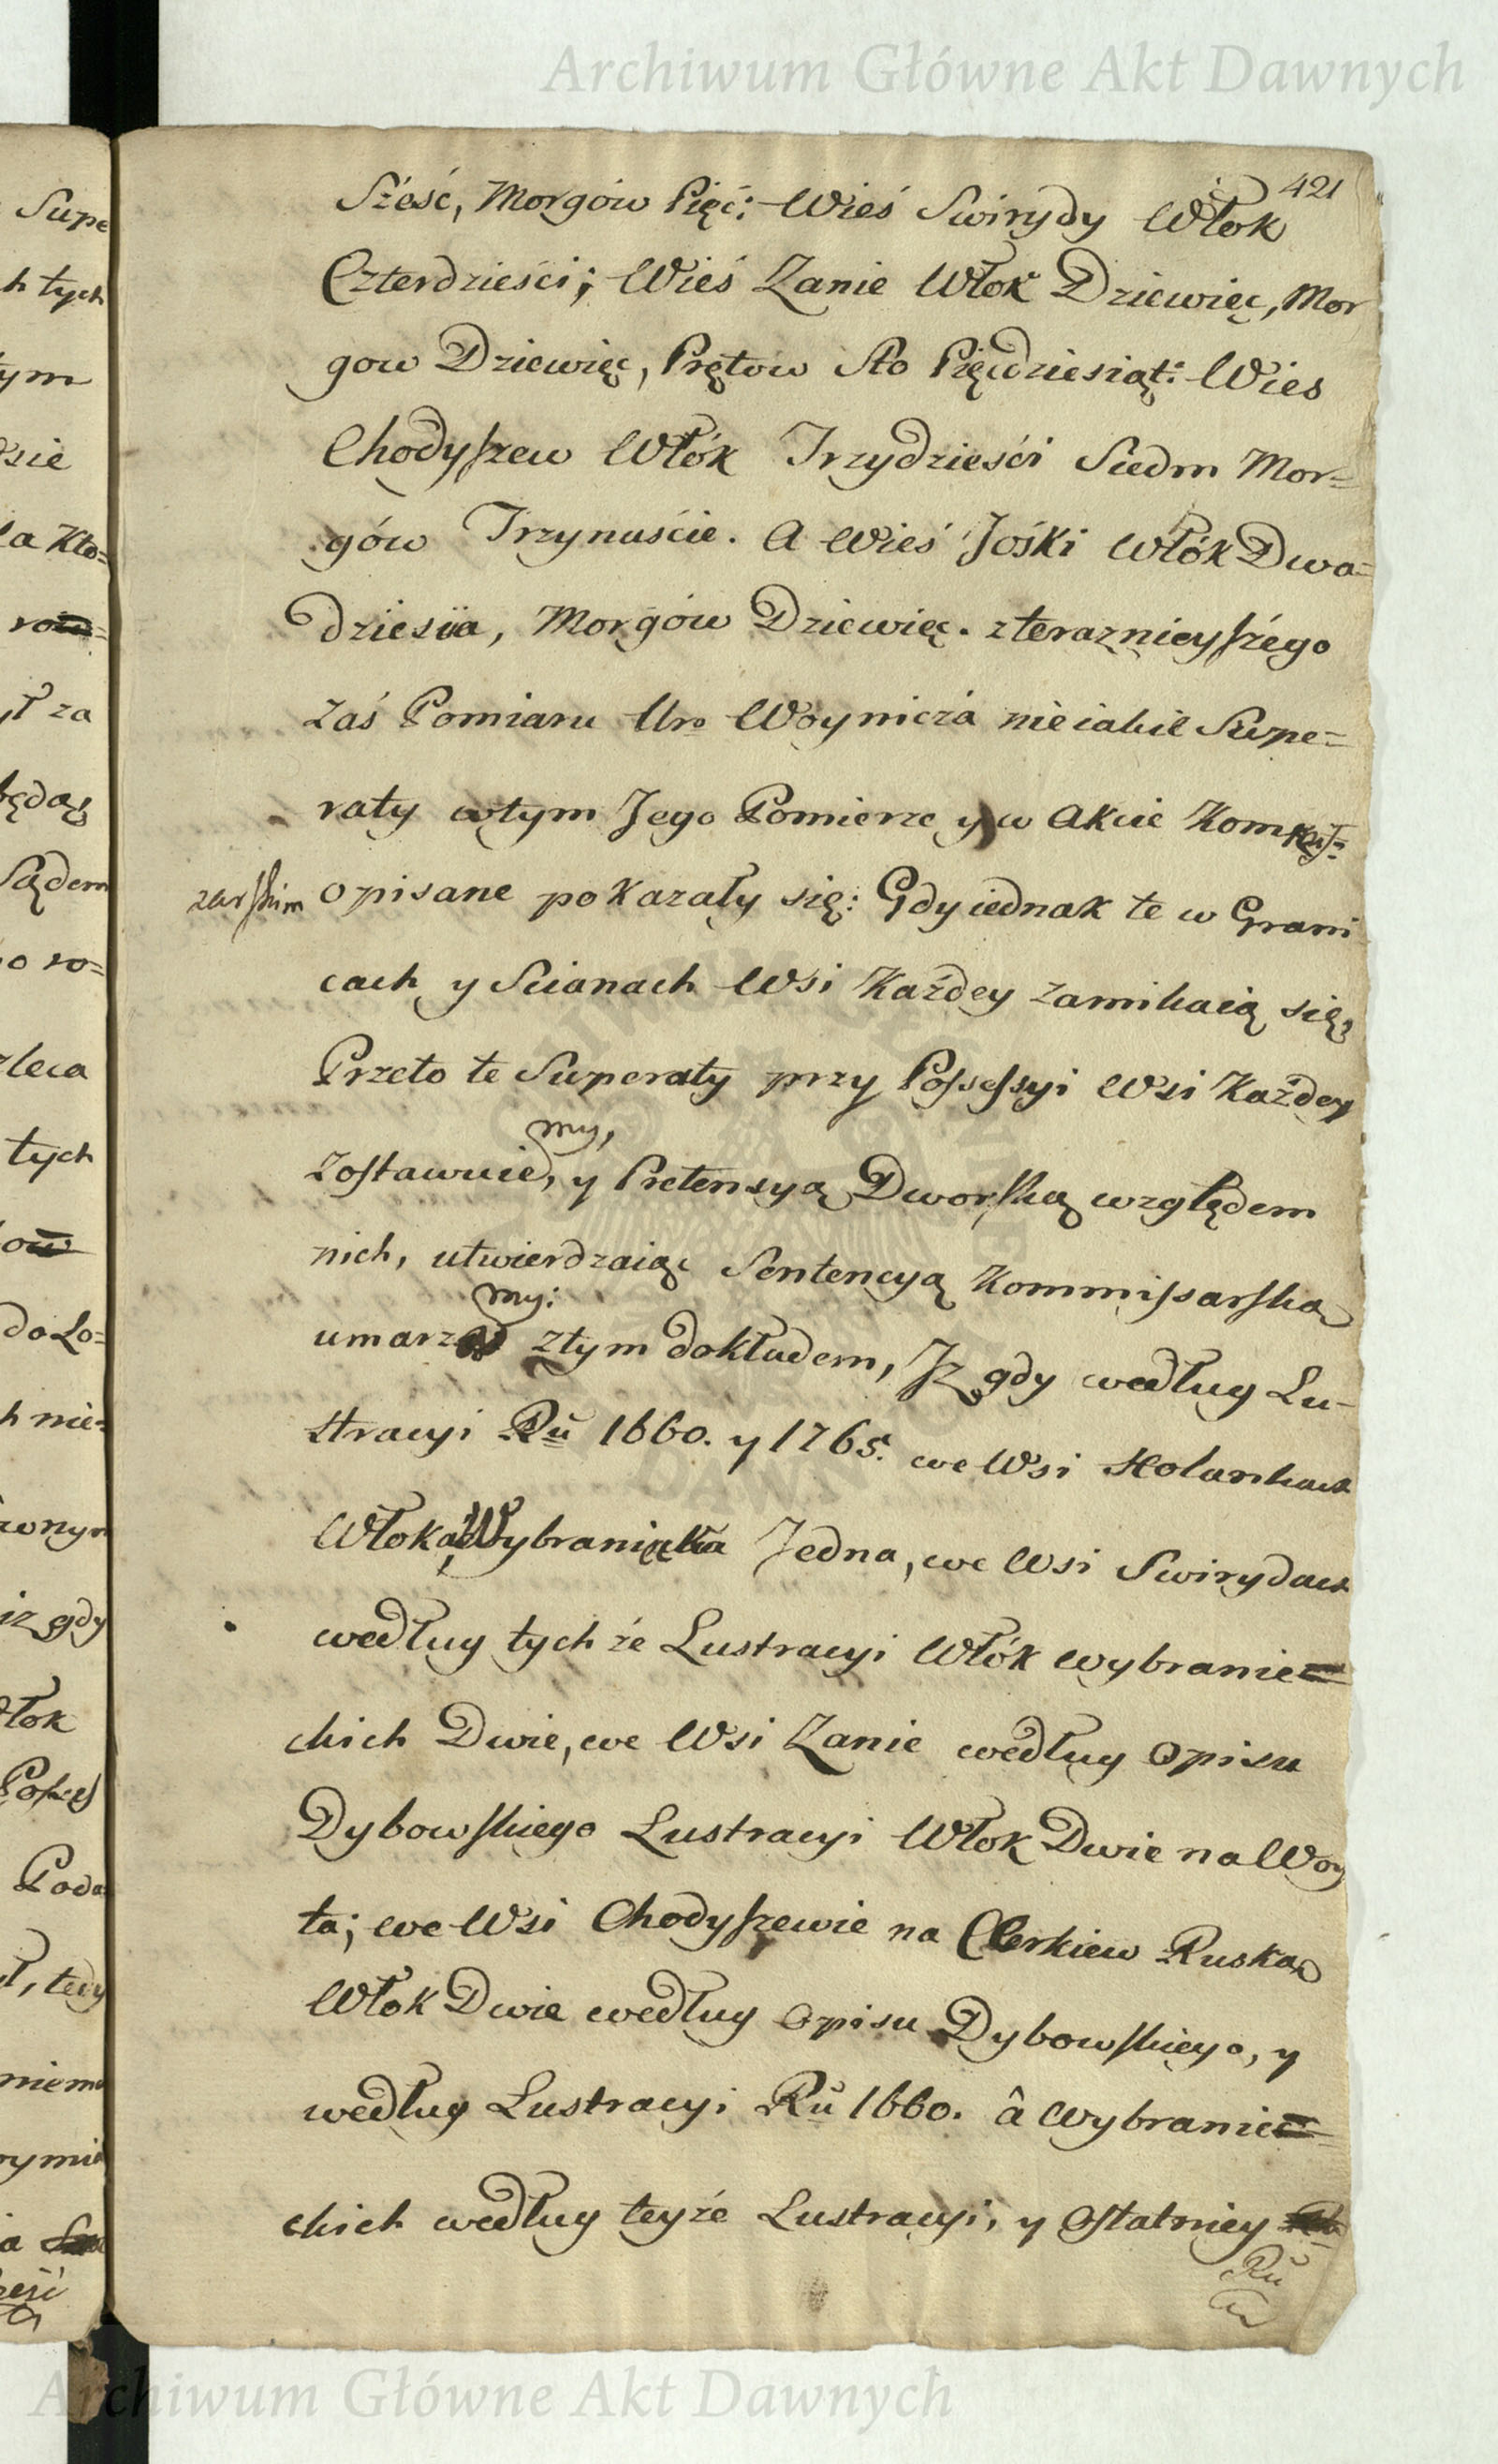 Archiwum Główne Akt Dawnych
421
Sześć, Morgow Pięć; Wieś Swirydy Włok
Czterdzieści; Wieś Zanie Włok Dziewięc, Mor
gow Dziewięc, Prętow Sto Pięcdziesiąt: Wies
Chodyszew Włók Trzydzieści Siedm Mor=
gów Trzynaście. A Wieś Jośki Włók Dwa=
dziescia, Morgów Dziewięc. z terazniejszego
Zaś Pomiaru Uro Woynicza nieiakie Supe=
raty wtym Jego Pomierze y w Akcie Kom
zarskim opisane pokazały się: Gdy iednak te w Grani
cach y Scianach Wsi Każdey zamikaią się,
Przeto te Superaty przy Possessyi Wsi Każdey
my,
Zostawuie, y Pretensyą Dworską względem
nich, utwierdzaiąc Sentencyą Kommissarską
my:
umarza ztym dokładem, Iz gdy według Lu-
stracyi Ru 1660. y 1765. we Wsi Holonkach
Włoka Wybraniecka Jedna, we Wsi Swirydach
według tychże Lustracyi Włók wybranie=
ckich Dwie, we Wsi Zanie według Opisu
Dybowskiego Lustracyi Włok Dwie na Woy
ta; we Wsi Chodyszewie na Cerkiew Ruską
Włok Dwie według Opisu Dybowskiego, y
według Lustracyi Ru 1660. â Wybranie=
ckich według teyże Lustracyi, y Ostatniey
Ru
Supe
h tych
ym
dzie
la Kto=
ł za
będą
Sądem
o ro=
zleca
tych
do Lo=
h nie=
iz gdy
włok
Poda
ł, tedy
niema
Archiwum Główne Akt Dawnych